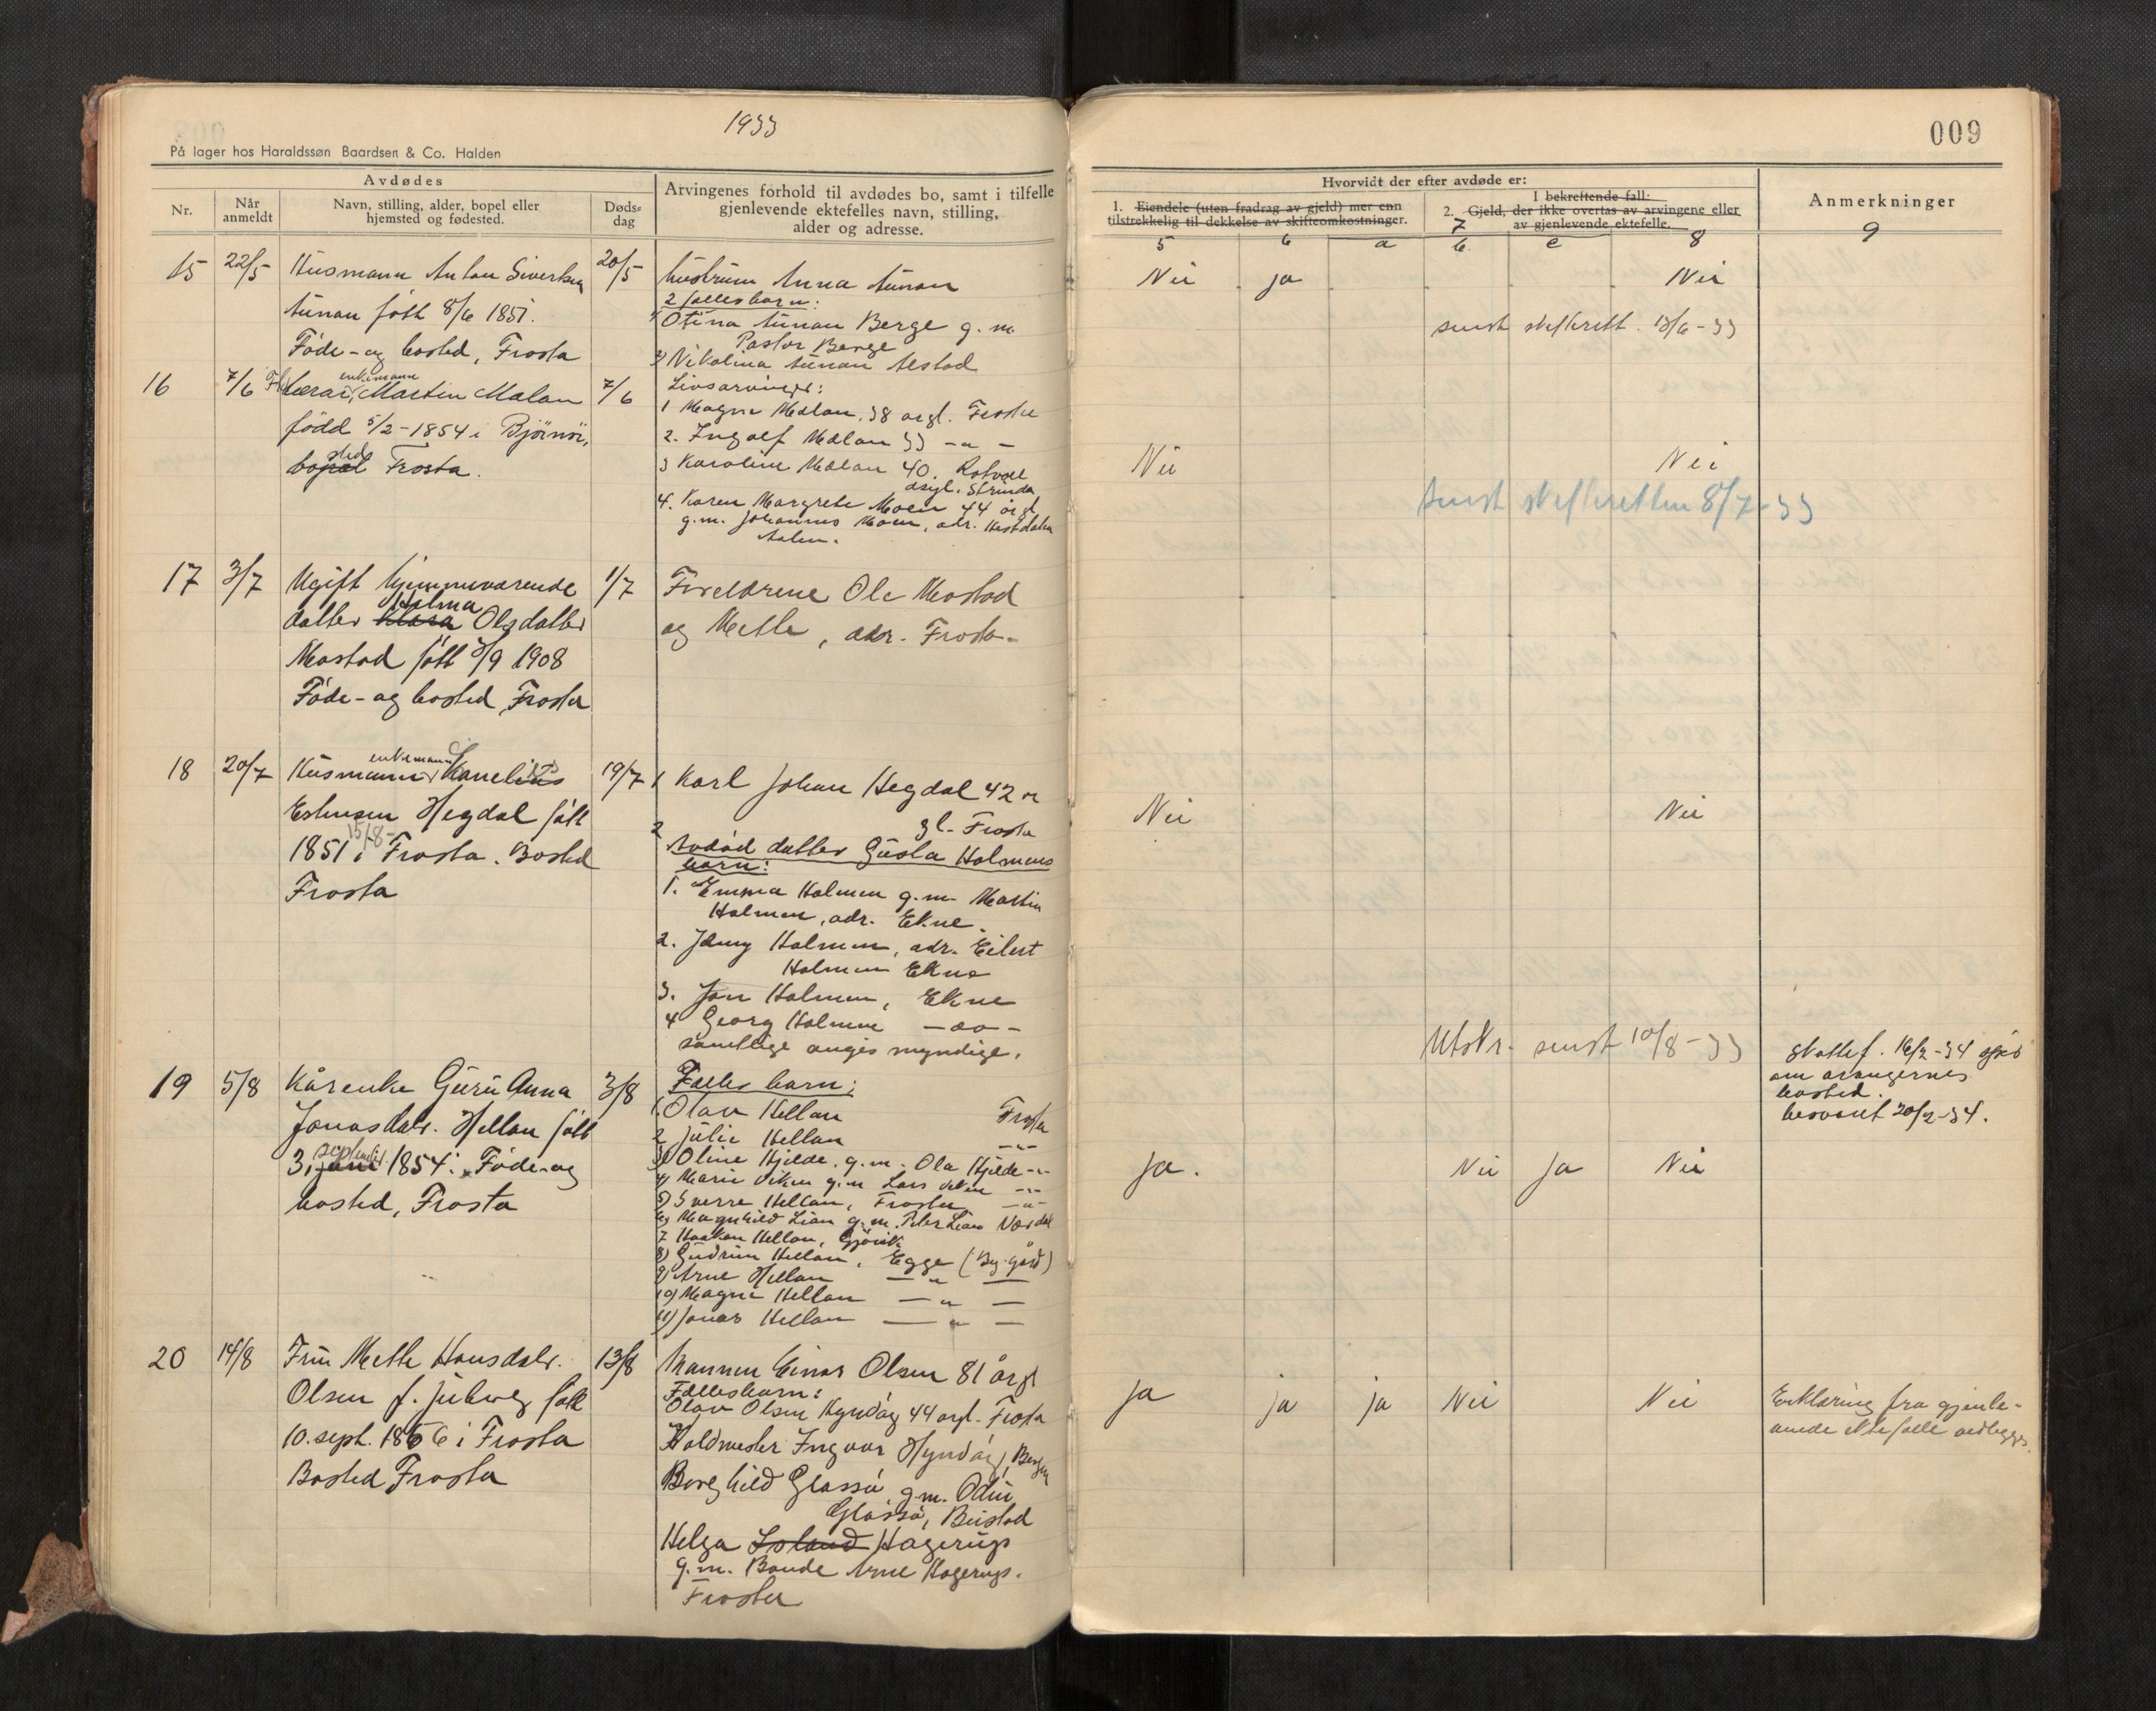 1933
På lager hos Haraldssøn Baardsen & Co. Halden
Avdødes
Nr.
Når anmeldt
Navn, stilling, alder, bopel eller hjemsted og fødested.
Døds-dag
Arvingenes forhold til avdødes bo, samt i tilfelle
gjenlevende ektefelles navn, stilling,
alder og adresse.
15 22/5 Husmann Anton Sivertsen 20/5
Aunan født 8/6 1851.
Føde- og bosted, Frosta
hustrum Anna Aunan
2 fellesbarn:
1) Otina Aunan Berge g. m.
Pastor Berge
2) Nikolina Aunan Aestad
16 7/6 enkemann Martin Mælan 7/6
født 5/2-1854 i Bjørnør,
bosted Frosta.
Livsarvinger:
1 Magne Mælan, 38 årgl. Frosta
2. Ingolf Mælan 33 -"-
3 Karoline Mælan 40. Rotvoll
asyl. Strinda
4. Karen Margrete Moen 44 årgl
g.m. Johannes Moen, adr. Hestdalen
Aalen.
17 3/7 Ugift hjemmeværende 1/7
datter Klara Helma Olsdatter
Mostad født 3/9 1908
Føde- og bosted, Frosta
Foreldrene Ole Mostad
og Mette, adr. Frosta.
18 20/7 Husmann enkemann Kornelius 19/7
Estensen Hegdal født
15/8-
1851 i Frosta. Bosted
Frosta
1 Karl Johan Hegdal 42 år
gl. Frosta
2 Avdød datter Gusta Holmens
barn:
1. Emma Holmen g.m. Martin
Holmen, adr. Ekne.
2. Jenny Holmen, adr. Eilert
Holmen Ekne
3. Jon Holmen, Ekne
4 Georg Holmen -do-
samtlige angis myndige.
19 5/8 Kårenke Guru Anna 3/8
Jonasdatr. Hellan født
3. juni september 1854. Føde- og
bosted, Frosta
Felles barn:
1. Olav Hellan Frosta
2 Julie Hellan -"-
3) Oline Hjelde, g.m. Ola Hjelde -"-
4) Marie Viken g.m. Lars Viken -"-
5) Sverre Hellan, Frosta -"-
6) Magnhild Lian g.m. Peter Lian Verdal
7 Haakon Hellan, Gjøvik
8) Gudrun Hellan, Egge (By-gård)
9) Arne Hellan - " -
10) Magne Hellan - " -
11) Jonas Hellan - " -
20 14/8 Fru Mette Hansdatr. 13/8
Olsen f. Juberg født
10. sept. 1856 i Frosta
Bosted Frosta
Mannen Einar Olsen 81 årgl
Fellesbarn:
Olav Olsen Hyndøy 44 årgl. Frosta
Holdmester Ingvar Hyndøy, Bergen
Borghild Glassø g.m. Odin
Glassø, Buistad
Helga Loland Hagerup
g.m. Bonde Arne Hagerup.
Frosta
009
Hvorvidt der efter avdøde er:
1. Eiendele (uten fradrag av gjeld) mer enn
tilstrekkelig til dekkelse av skifteomkostninger.
I bekreftende fall:
2. Gjeld, der ikke overtas av arvingene eller
av gjenlevende ektefelle.
Anmerkninger
5 6 a 7 b c 8 9
Nei ja Nei
sendt skifterett. 13/6-33
Nei Nei
sendt skifteretten 8/7-33
Nei Nei
Utskr. sendt 10/8-33
skattef. 16/2-34
om arvingernes
bosted.
besvart 20/2-34.
ja. Nei ja Nei
ja ja ja Nei Nei
Erklæring fra gjenle-
vende ektefelle vedlegges.